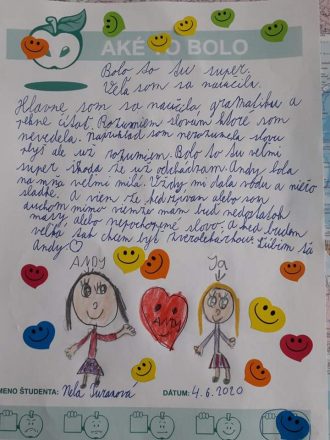 AKÉ TO BOLO
Bolo to tu super.
Veľa som sa naučila.
Hlavne som sa naučila gramatiku a
pekne čítať. Rozumiem slovám ktoré som
nevedela. Napríklad som nerozumela slovu
ale už rozumiem. Bolo to tu veľmi
super, škoda že už odchádzam. Andy bola
na mňa veľmi milá. Vždy mi dala vodu a niečo
sladké. A viem že keď zívam alebo som
duchom mimo viem že mám buď nedostatok
alebo nepochopené slovo. A keď budem
veľká tak chcem byť zverolekárkou ľúbim ťa
Andy ♡
ANDY
Ja
ANDY
MENO ŠTUDENTA: Nela
DÁTUM: 4.6.2020